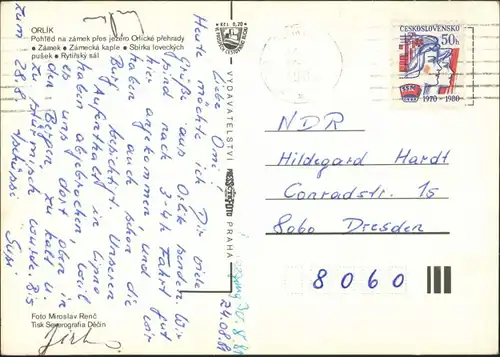 ORLÍK
Pohled na zámek přes jezero Orlické přehrady
• Zámek • Zámecká kaple • Sbírka loveckých
pušek • Rytířský sál
Liebe Omi!
Heute möchte ich Dir viele
Grüße aus Orlik senden. Wir
sind nach 3-4h Fahrt gut
hier angekommen, und
haben auch schon die
Burg besichtigt. Unseren
Aufenthalt in Lipno
haben wir abgebrochen, weil
es uns dort oben in
den Bergen zu kalt u.
zu stürmisch wurde. Bis
zum 28.8. tschüssi Susi
24.08.81
30.8.81
Foto Miroslav Renč
Tisk Severografia Děčín
VYDAVATELSTVÍ
PRESSFOTO
PRAHA
ČESKOSLOVENSKO
50h
1970 - 1980
NDR
Hildegard Hardt
Conradstr. 15
8060 Dresden
8060